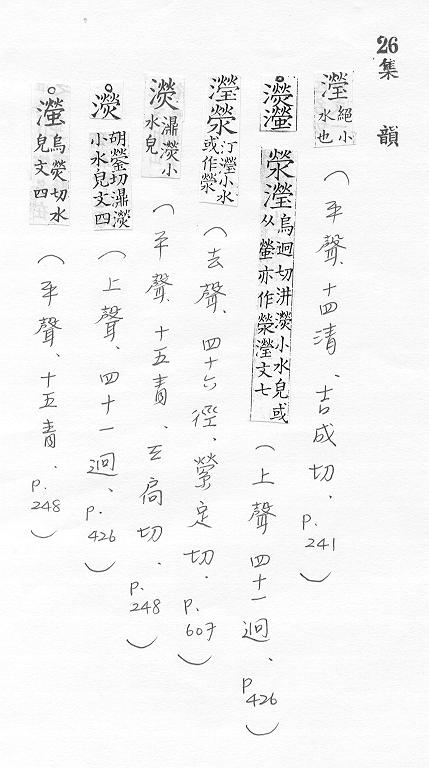 26 集韻
瀅 絕小水也 (平聲、十四清、吉成切、p.241)
濙瀯 滎瀅 烏迥切汫濙小水皃或从螢亦作滎瀅文七 (上聲四十一迥、p426)
瀅滎 汀瀅小水或作滎 (去聲、四十六徑、縈定切、p.607)
濙 濎濙小水皃 (平聲、十五青、玄扃切、p.248)
濙 胡鎣切濎濙小水皃文四 (上聲、四十一迥、p.426)
烏熒切水皃文四 (平聲、十五青、p.248)